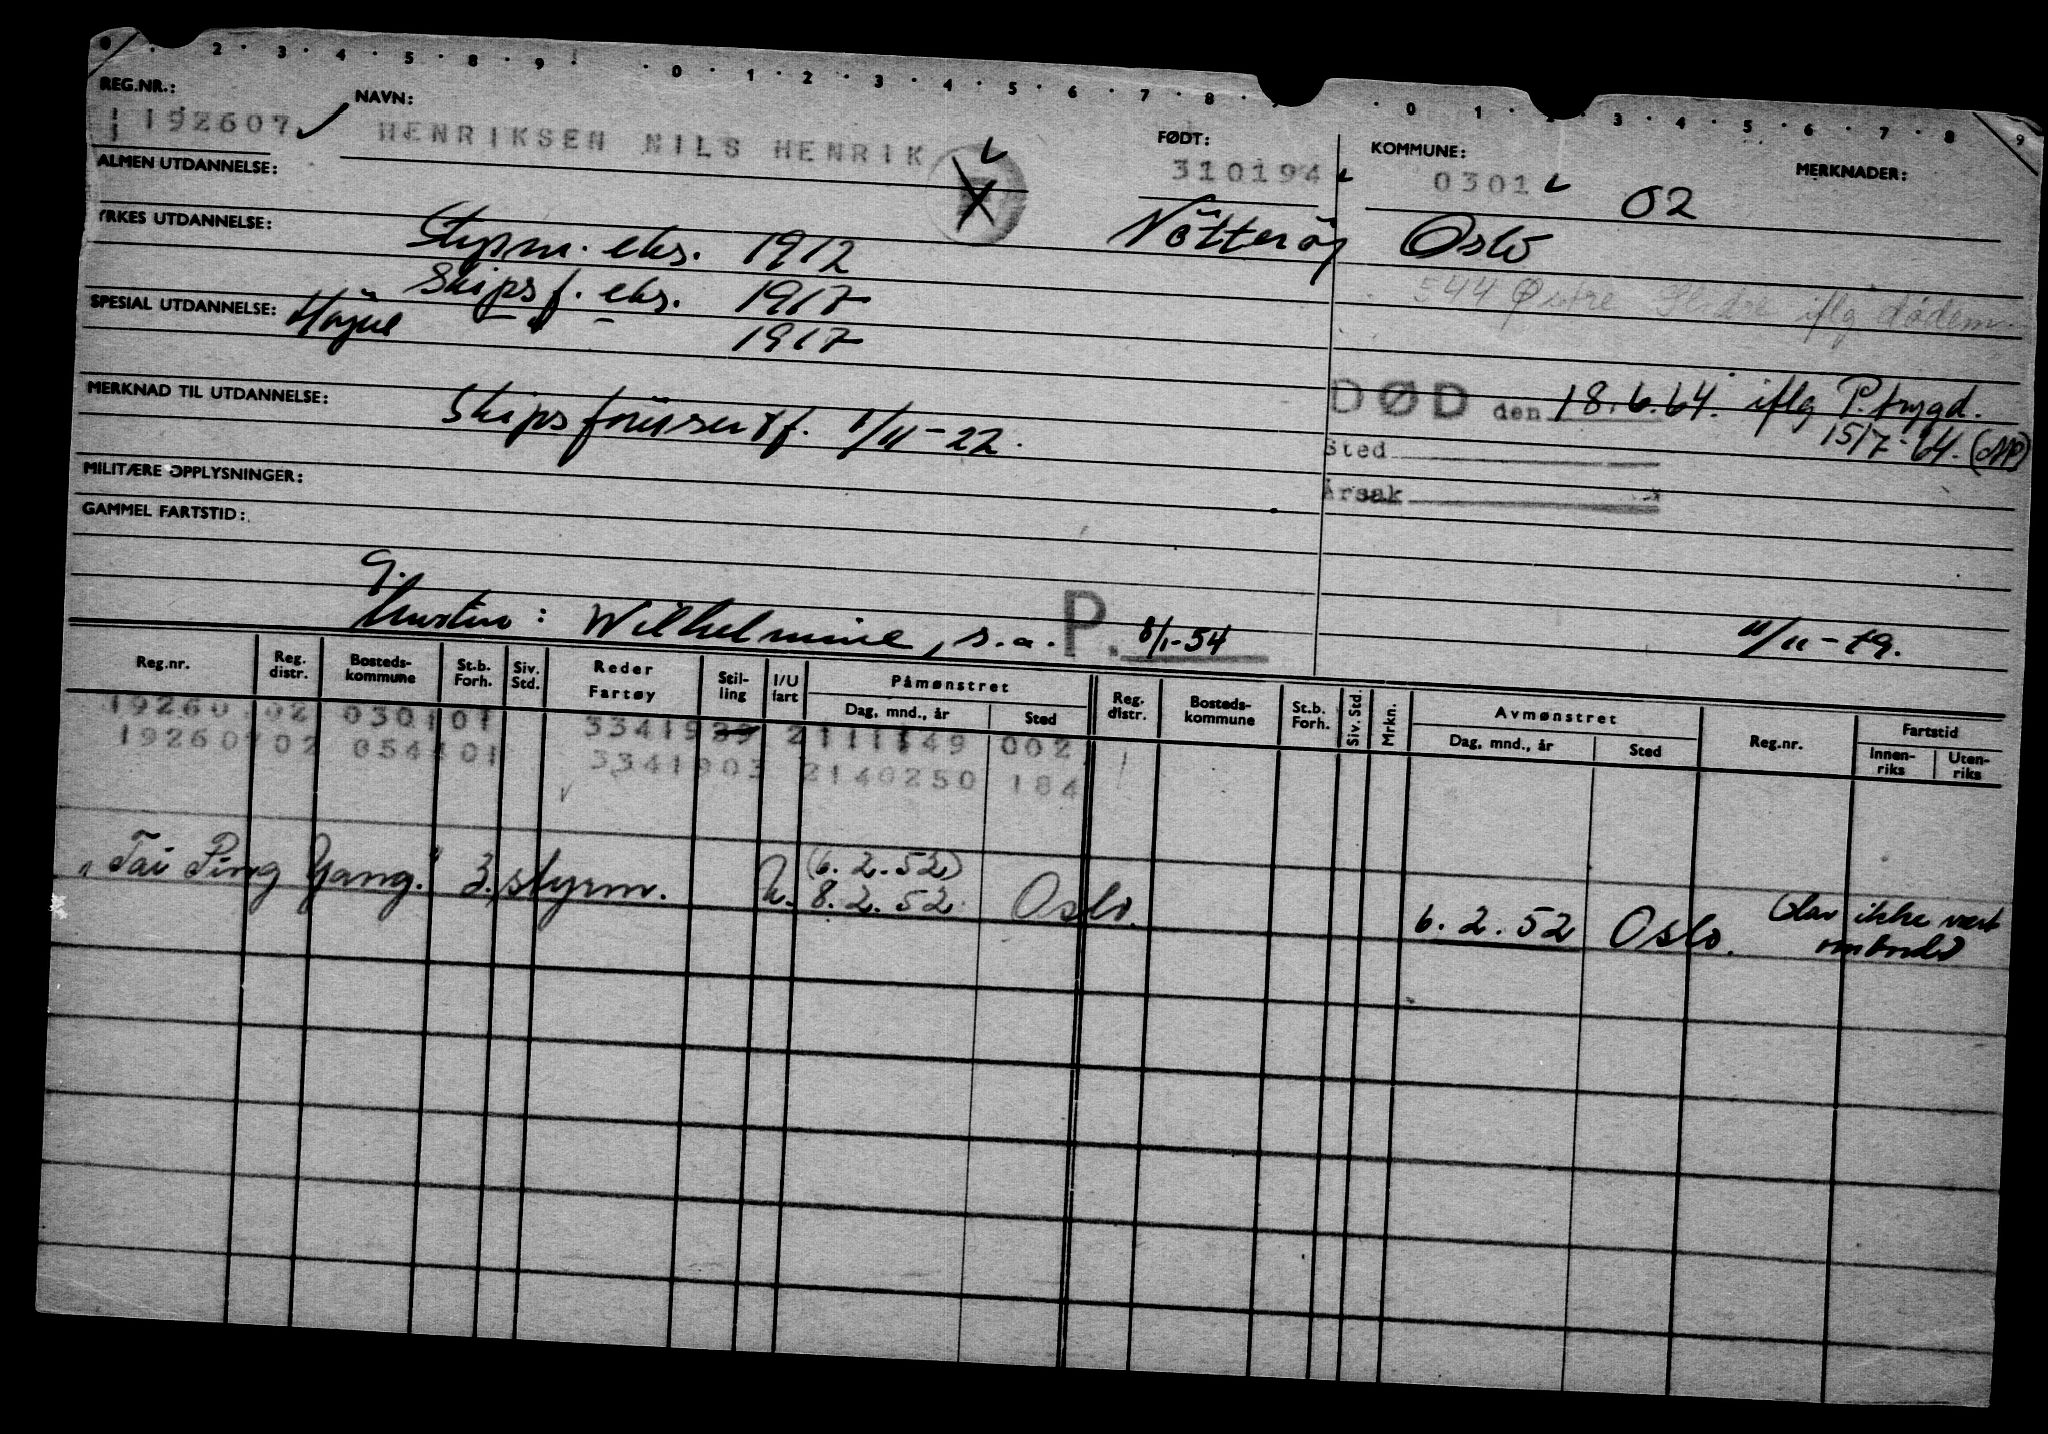 2 · 3 · 4 · 5 · 8 · 9 · · 0 · 1 · 2 · 3 · 4 · 5 · 6 · 7 · 8 · · 0 · 1 · 2 · 3 · 4 · 5 · 6 · 7 · 8 · 9
REG.NR.: NAVN: FØDT: KOMMUNE: MERKNADER:
192607 HENRIKSEN NILS HENRIK 310194 0301 02
ALMEN UTDANNELSE:
Nötteröy Oslo
YRKES UTDANNELSE: Styrm. eks. 1912
Skipsf. eks. 1917
544 Østre Slidre iflg dødem.
SPESIAL UTDANNELSE: Höyere 1917
DØD den 18.6.64. iflg P.trygd.
15/7-64. (MP)
MERKNAD TIL UTDANNELSE: Skipsförersertf. 1/11-22.
Sted
MILITÆRE OPPLYSNINGER:
Årsak
GAMMEL FARTSTID:
g.
Hustru: Wilhelmine, s.a. P. 8/1-54
11/11-49.
Reg.nr. Reg. distr. Bosteds-kommune St.b. Forh. Siv. Std. Reder Fartøy Stil-ling I/U fart Påmønstret Dag, mnd., år Sted Reg. distr. Bosteds-kommune St.b. Forh. Siv. Std. Mrkn. Avmønstret Dag, mnd., år Sted Reg.nr. Fartstid Innen-riks Uten-riks
19260 02 030101 3341939 2111149 002
19260702 054401 3341903 2140250 184
(6.2.52)
"Tai Ping Yang." 3. styrm. U. 8.2.52 Oslo. 6.2.52 Oslo. Har ikke vært
ombord